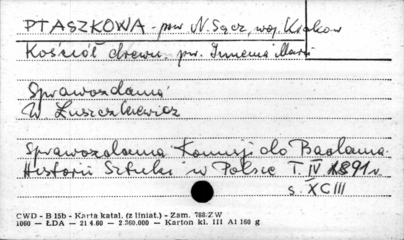 PTASZKOWA - pow N. Sącz, woj. Krakow
Kościół drewn. pw. Imienia Marii
Sprawozdania
W. Łuszczkiewicz
Sprawozdania Komisji do Badania
Historii Sztuki w Polsce T. IV 1891 r.
s. XCIII
CWD - B 15b - Karta katal. (z liniat.) - Zam. 788/ZW
1060 — ŁDA — 21 4.60 — 2.360.000 — Karton kl. III A1 160 g